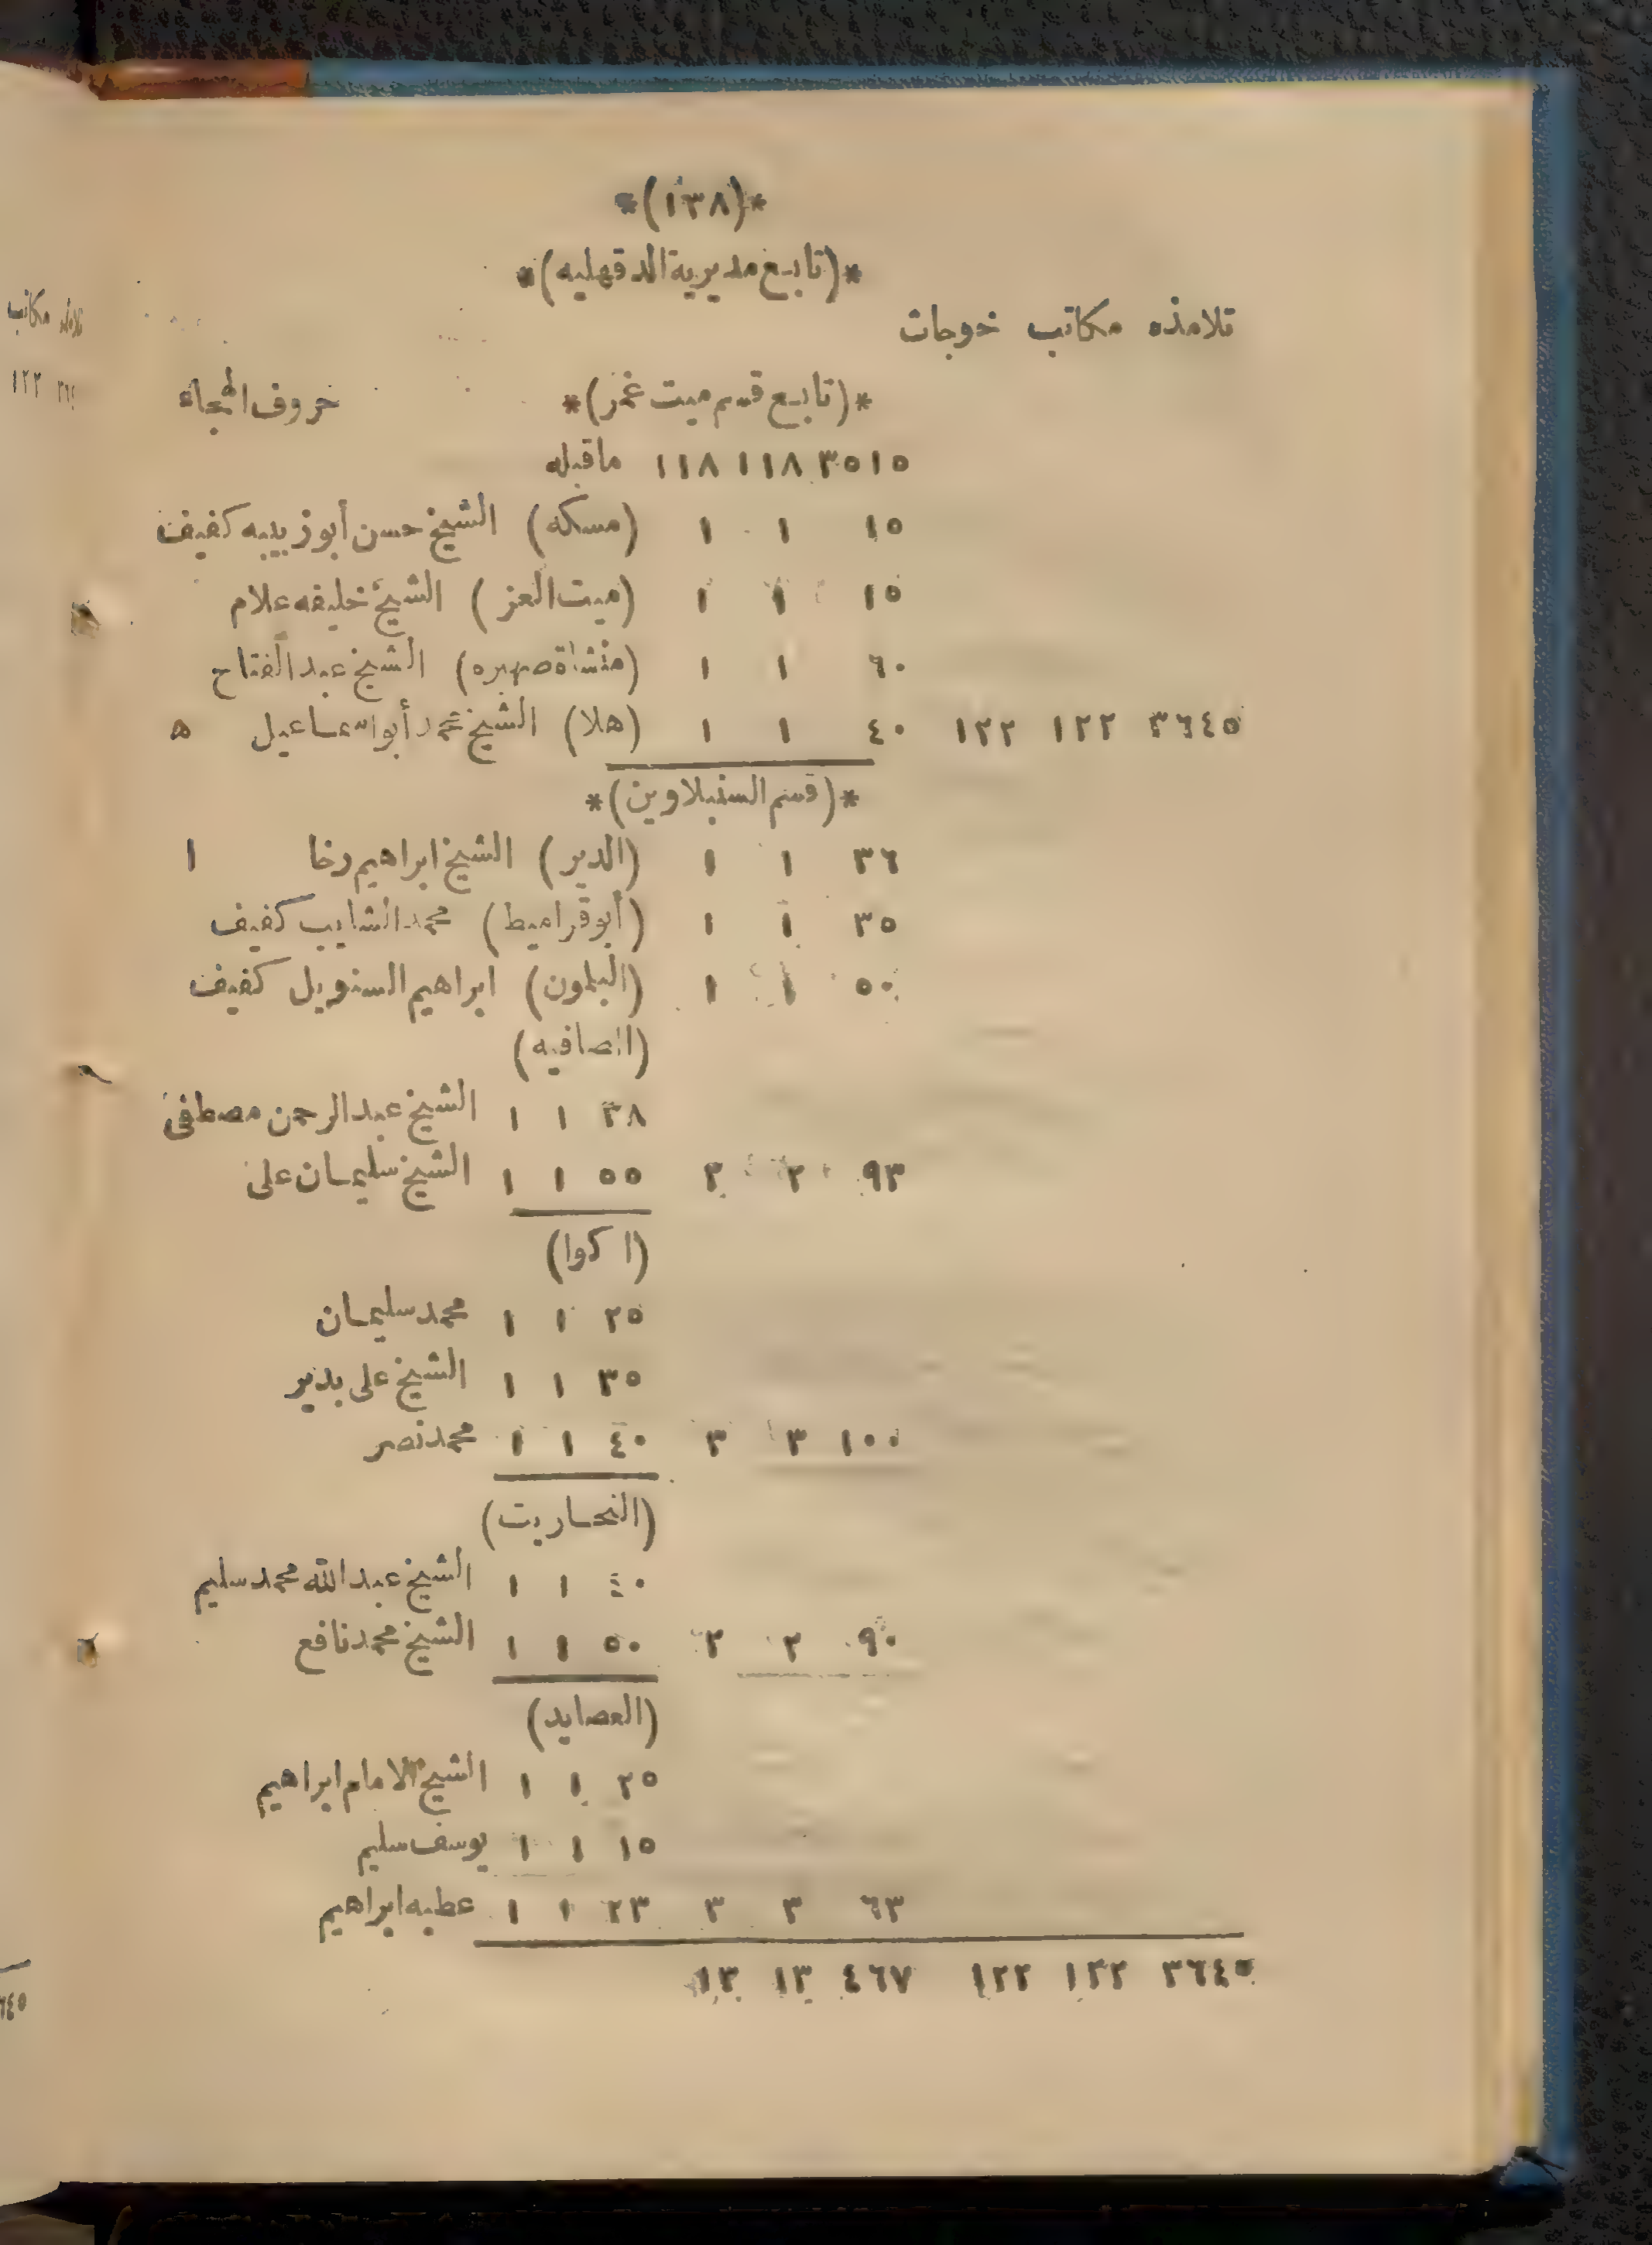 *(١٣٨)*
*(تابع مديرية الدقهليه)*
تلامذه مكاتب خوجات
*(تابع قسم ميت غمر)* حروف الهجاء
٣٥١٥ ١١٨ ١١٨ ماقبله
١٥ ١ ١ (مسكه) الشيخ حسن أبو زبيبه كفيف
١٥ ١ ١ (ميت العز) الشيخ خليفه علام
٦٠ ١ ١ (منشاة صهبره) الشيخ عبد الفتاح
٣٦٤٥ ١٢٢ ١٢٢ ٤٠ ١ ١ (هلا) الشيخ محمد أبو اسماعيل ه
*(قسم السنبلاوين)*
٣٦ ١ ١ (الدير) الشيخ ابراهيم رخا ا
٣٥ ١ ١ (أبو قراميط) محمد الشايب كفيف
٥٠ ١ ١ (البلمون) ابراهيم السنويل كفيف
(الصافيه)
٣٨ ١ ١ الشيخ عبد الرحمن مصطفى
٩٣ ٢ ٢ ٥٥ ١ ١ الشيخ سليمان على
(اكوا)
٢٥ ١ ١ محمد سليمان
٣٥ ١ ١ الشيخ على بدير
١٠٠ ٣ ٣ ٤٠ ١ ١ محمد نصر
(النحاريت)
٤٠ ١ ١ الشيخ عبد الله محمد سليم
٩٠ ٢ ٢ ٥٠ ١ ١ الشيخ محمد نافع
(العصايد)
٢٥ ١ ١ الشيخ الامام ابراهيم
١٥ ١ ١ يوسف سليم
٦٣ ٣ ٣ ٢٣ ١ ١ عطيه ابراهيم
٣٦٤٥ ١٢٢ ١٢٢ ٤٦٧ ١٣ ١٣
تلامذه مكاتب
١٢٢